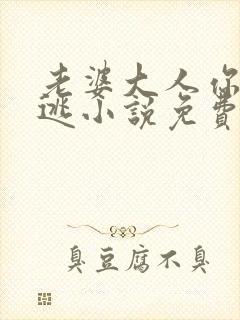 老婆大人你
逃小説免費
臭豆腐不臭